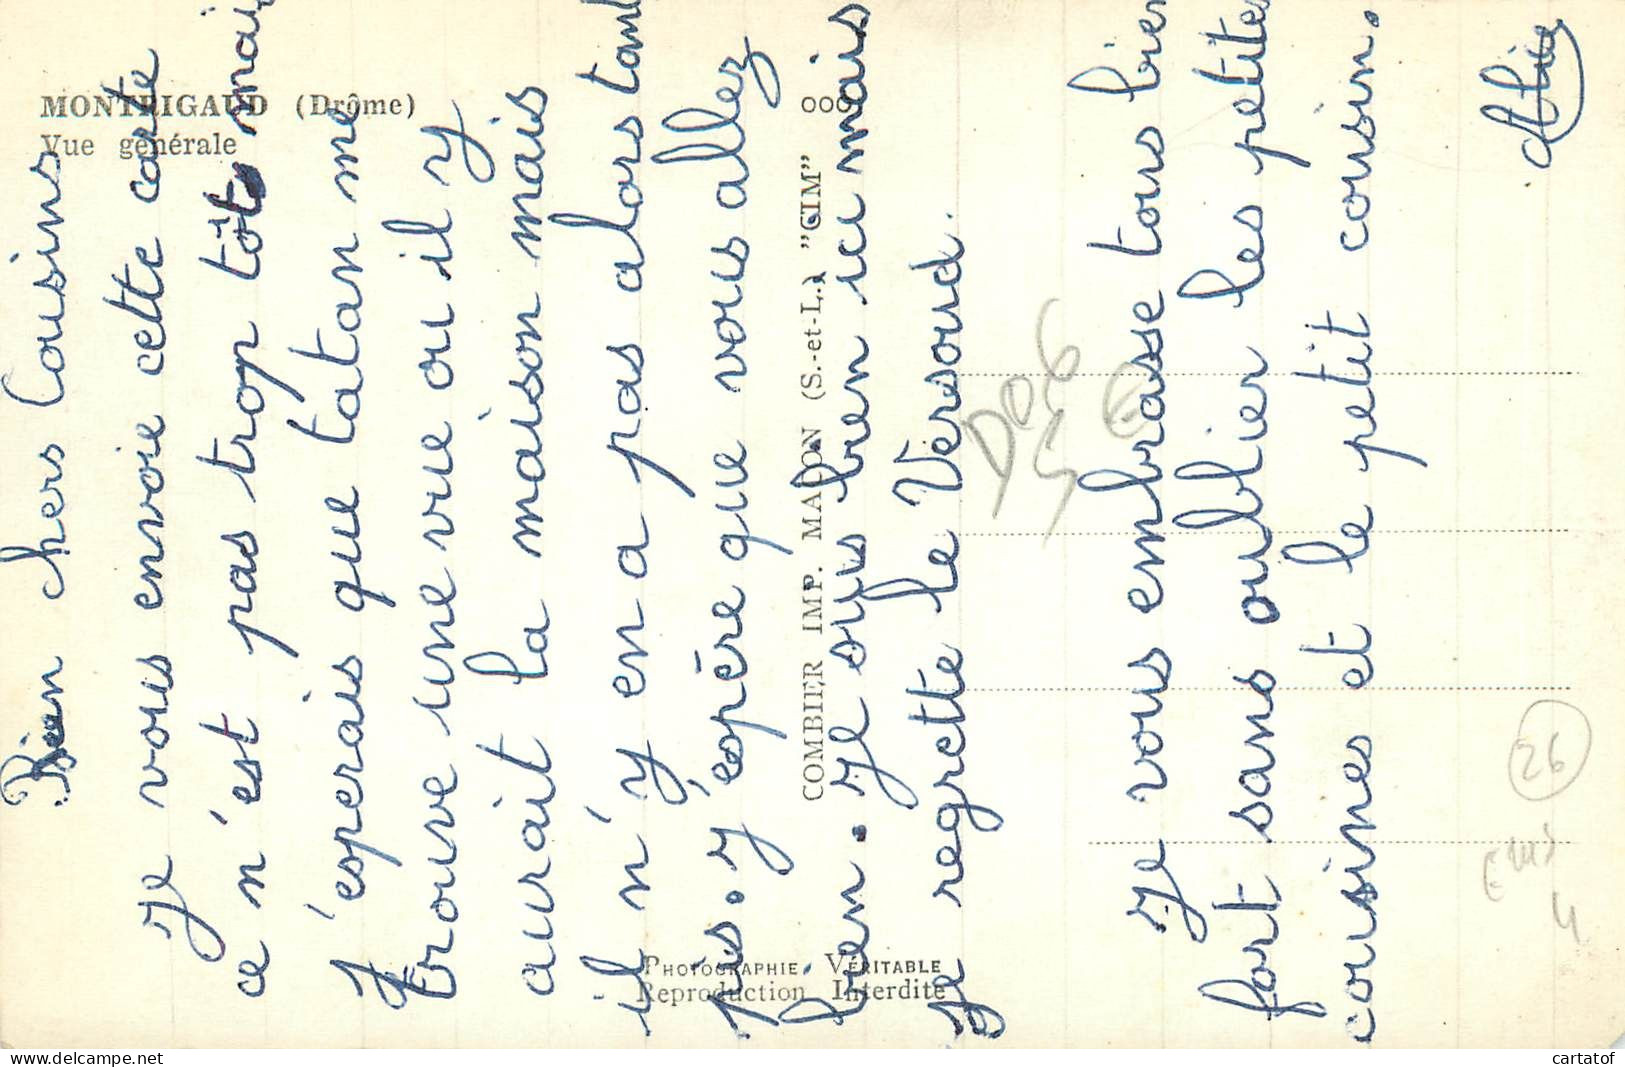 MONTRIGAUD (Drôme)
Vue générale
COMBIER IMP. MACON (S.-et-L.) "CIM"
PHOTOGRAPHIE VÉRITABLE
Reproduction Interdite
Bien chers Cousins
Je vous envoie cette carte
ce n'est pas trop tôt mais
J'esperais que tatan me
trouve une vue ou il y
aurait la maison mais
il n'y en a pas alors tant
pis. J'espère que vous allez
bien. Je suis bien ici mais
je regrette le Versoud.
Je vous embrasse tous bien
fort sans oublier les petites
cousines et le petit cousin.
26
4
www.delcampe.net
cartatof